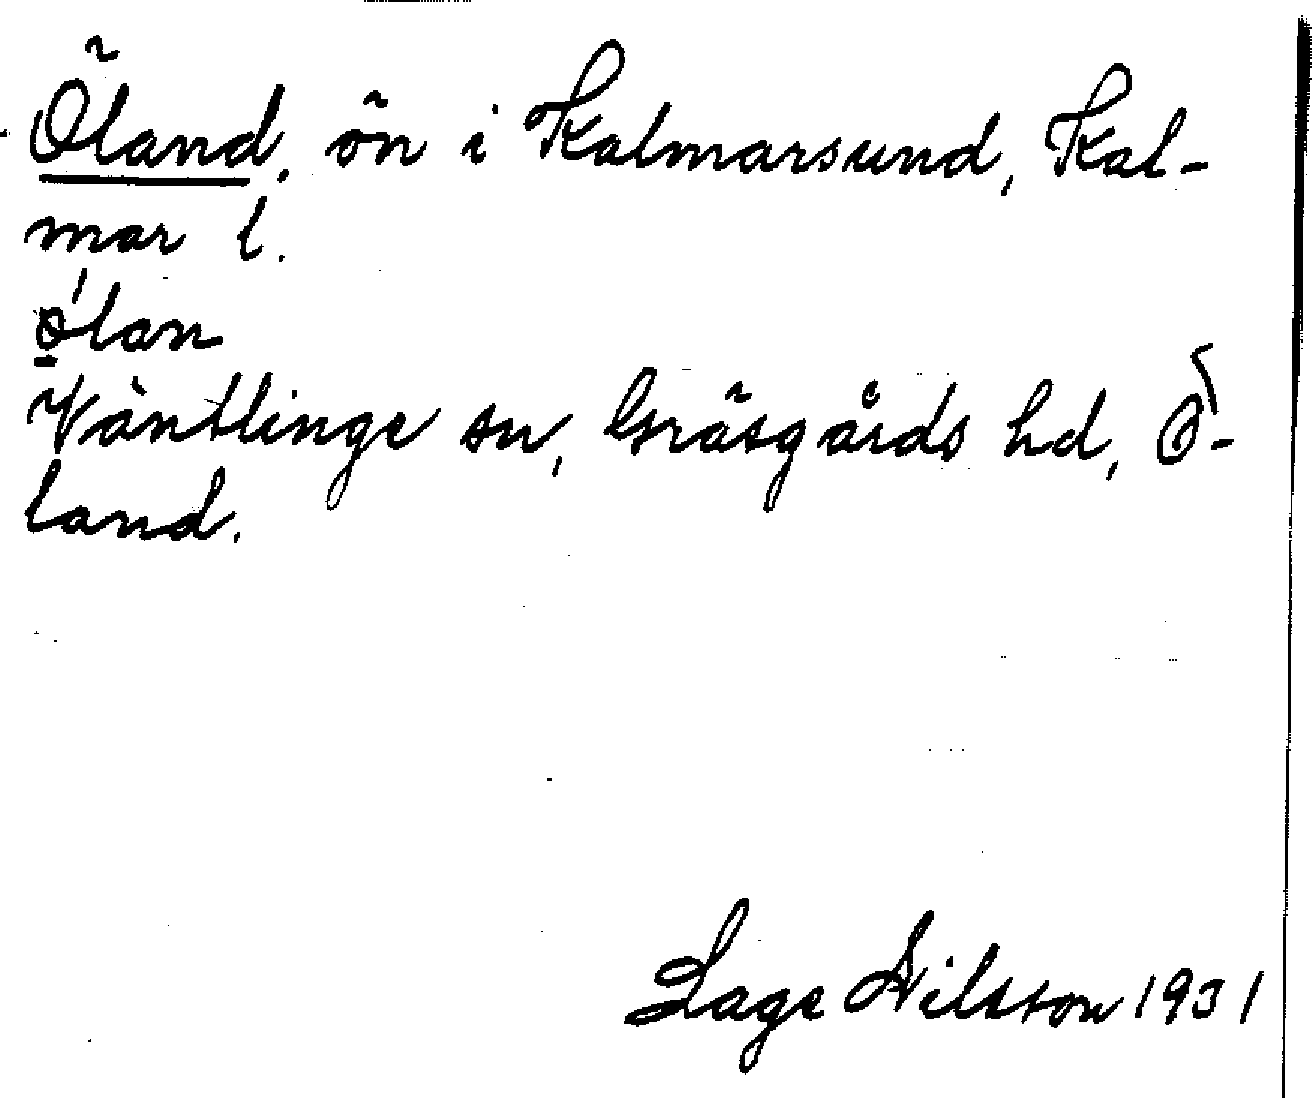 Öland, ön i Kalmarsund, Kal-
mar l.
ölan
Väntlinge sn, Gräsgårds hd, Ö-
land.
Lage Nilsson 1931